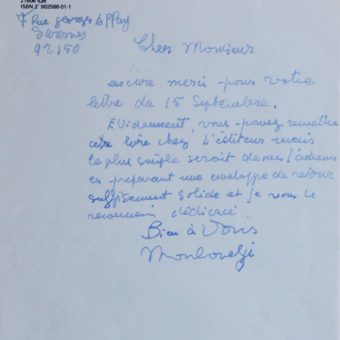 21806 438
ISBN 2 902588-01-1
7 Rue Georges
Suresnes
92150
Cher Monsieur
encore merci pour votre
lettre du 15 Septembre.
Evidemment, vous pouvez remettre
ce livre chez l'éditeur mais
le plus simple serait de me l'adresser
en préparant une enveloppe de retour
suffisamment solide et je vous le
renverrai dédicacé.
Bien à Vous
Mouloudji